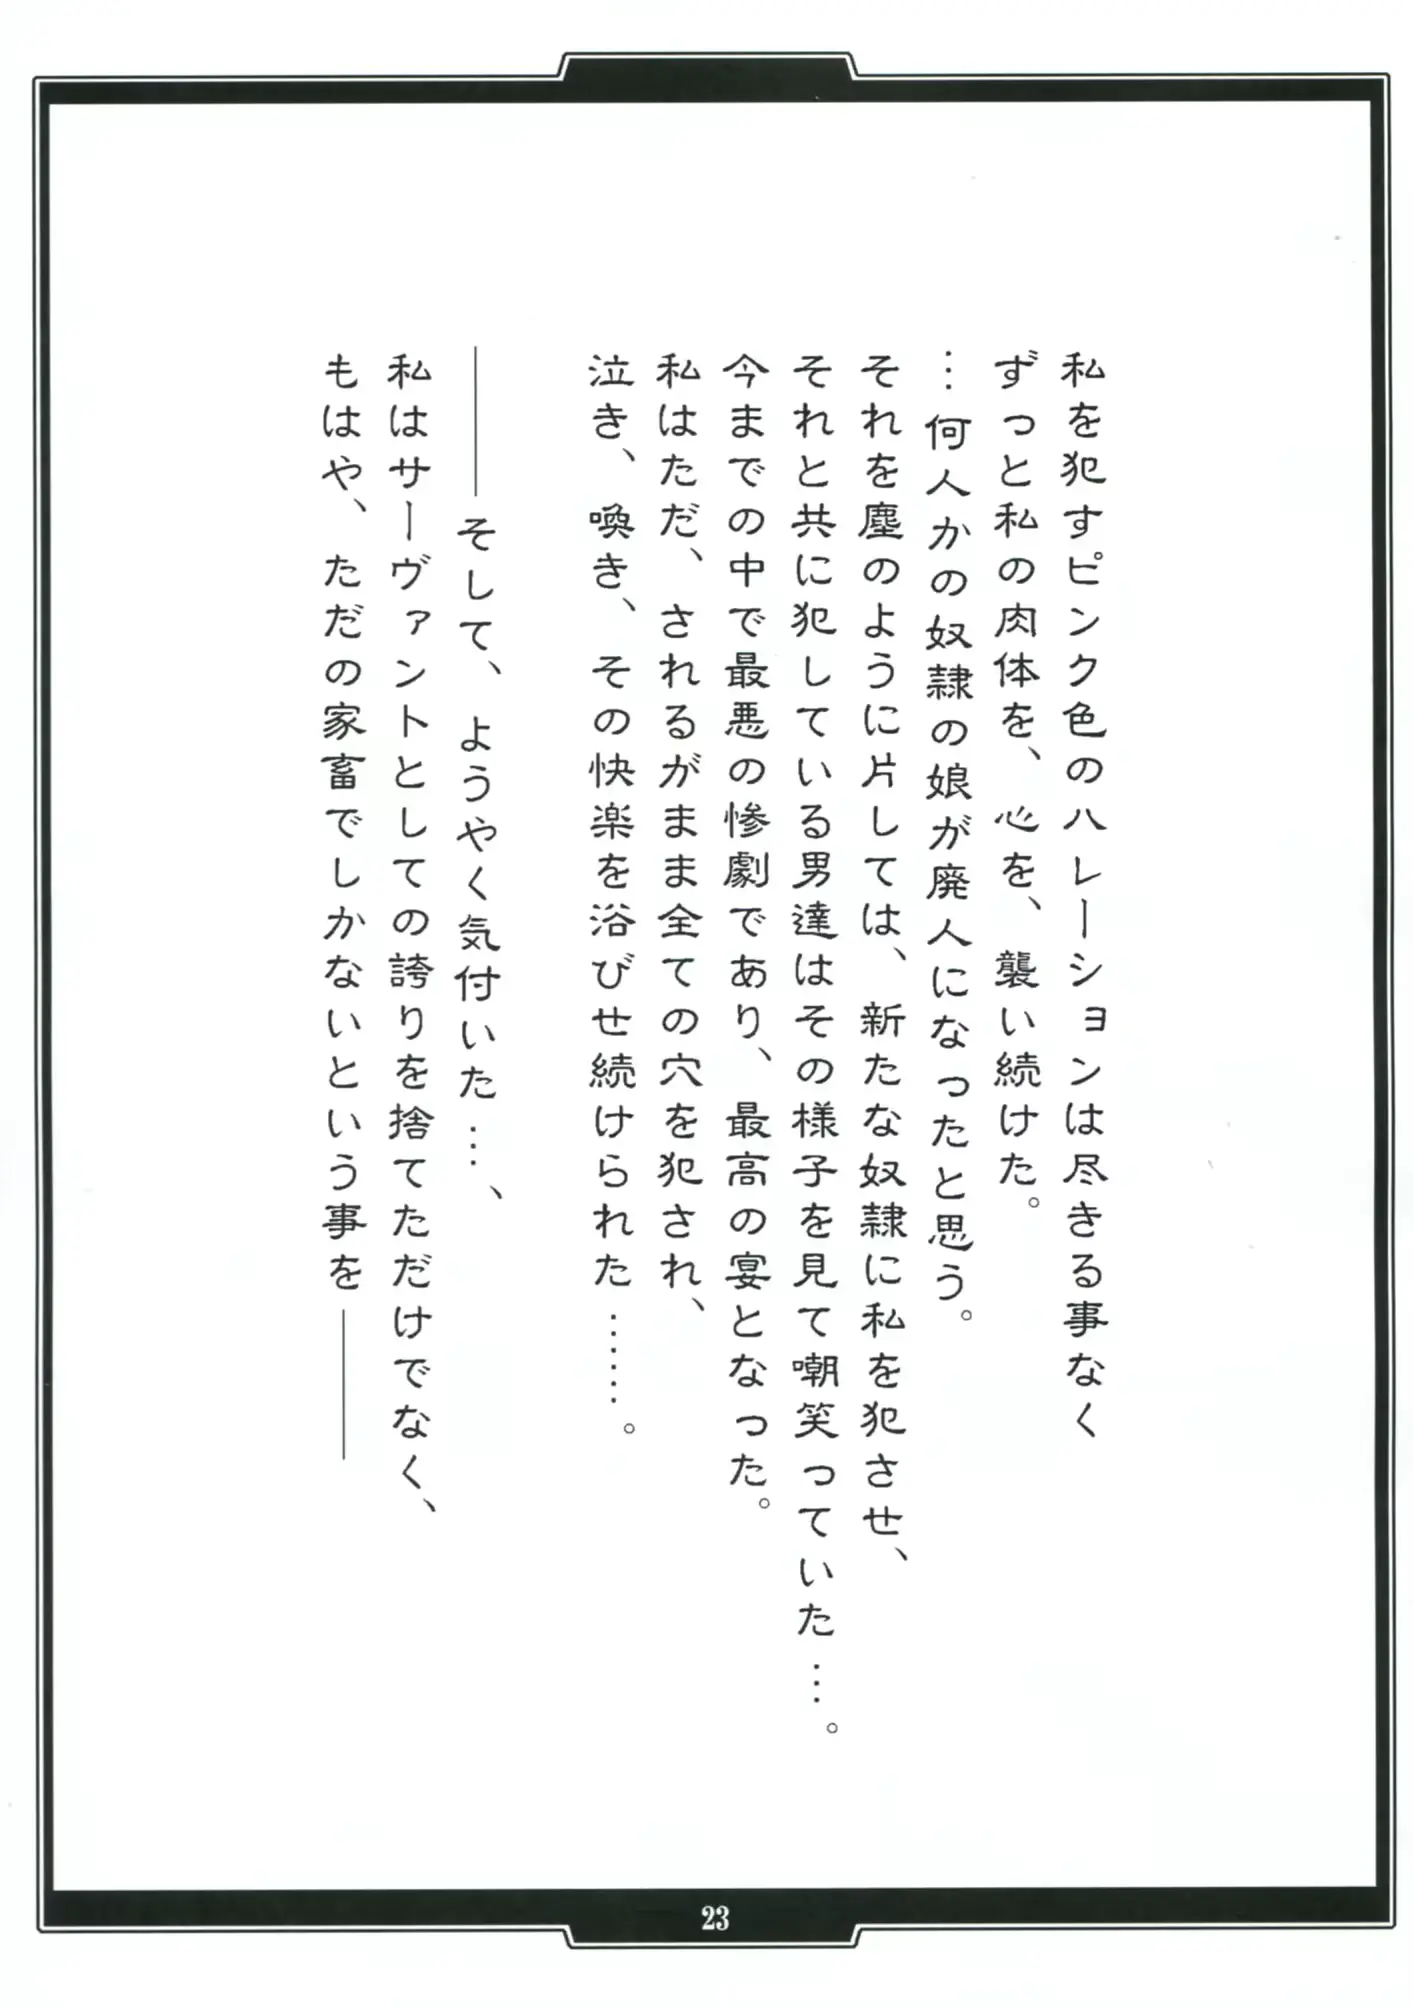 私を犯すピンク色のハレーションは尽きる事なく
ずっと私の肉体を、心を、襲い続けた。
…何人かの奴隷の娘が廃人になったと思う。
それを塵のように片しては、新たな奴隷に私を犯させ、
それと共に犯している男達はその様子を見て嘲笑っていた…。
今までの中で最悪の惨劇であり、最高の宴となった。
私はただ、されるがまま全ての穴を犯され、
泣き、喚き、その快楽を浴びせ続けられた……。
───そして、ようやく気付いた…、
私はサーヴァントとしての誇りを捨てただけでなく、
もはや、ただの家畜でしかないという事を───
23